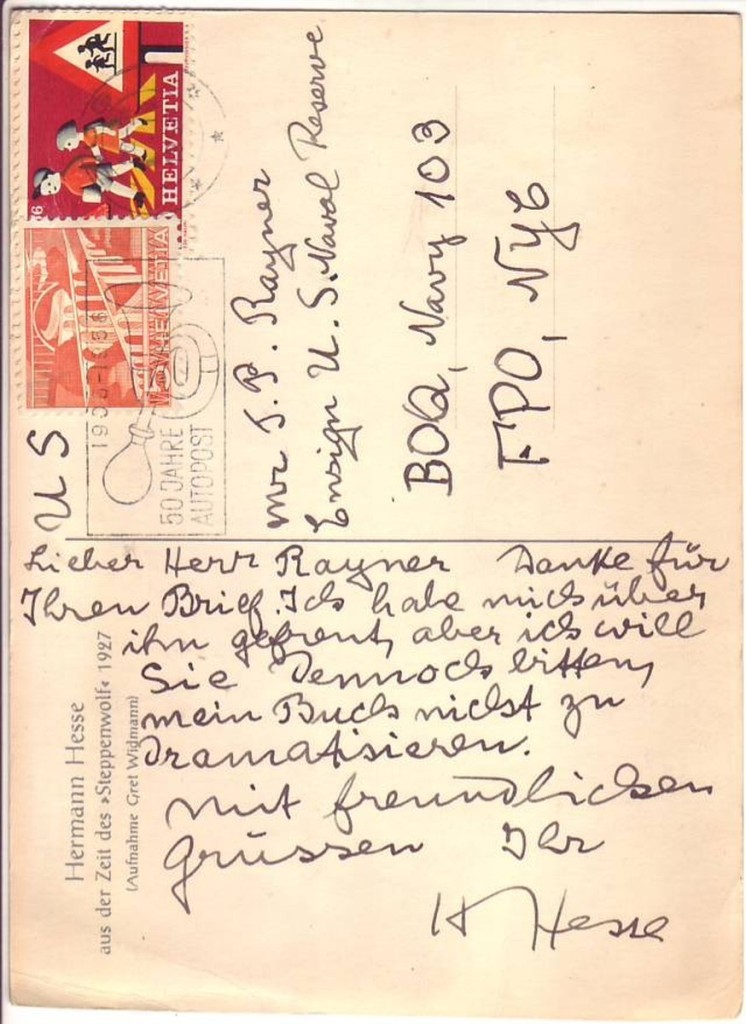 Lieber Herr Rayner Danke für
Ihren Brief. Ich habe mich über
ihn gefreut, aber ich will
Sie dennoch bitten,
mein Buch nicht zu
dramatisieren.
Mit freundlichen
Grüssen Ihr
H Hesse
Hermann Hesse
aus der Zeit des »Steppenwolf« 1927
(Aufnahme Gret Widmann)
U S
Mr J. P. Rayner
Ensign U. S. Naval Reserve
BOQ, Navy 103
FPO, NYC
HELVETIA
HELVETIA
1906-1956
50 JAHRE
AUTOPOST